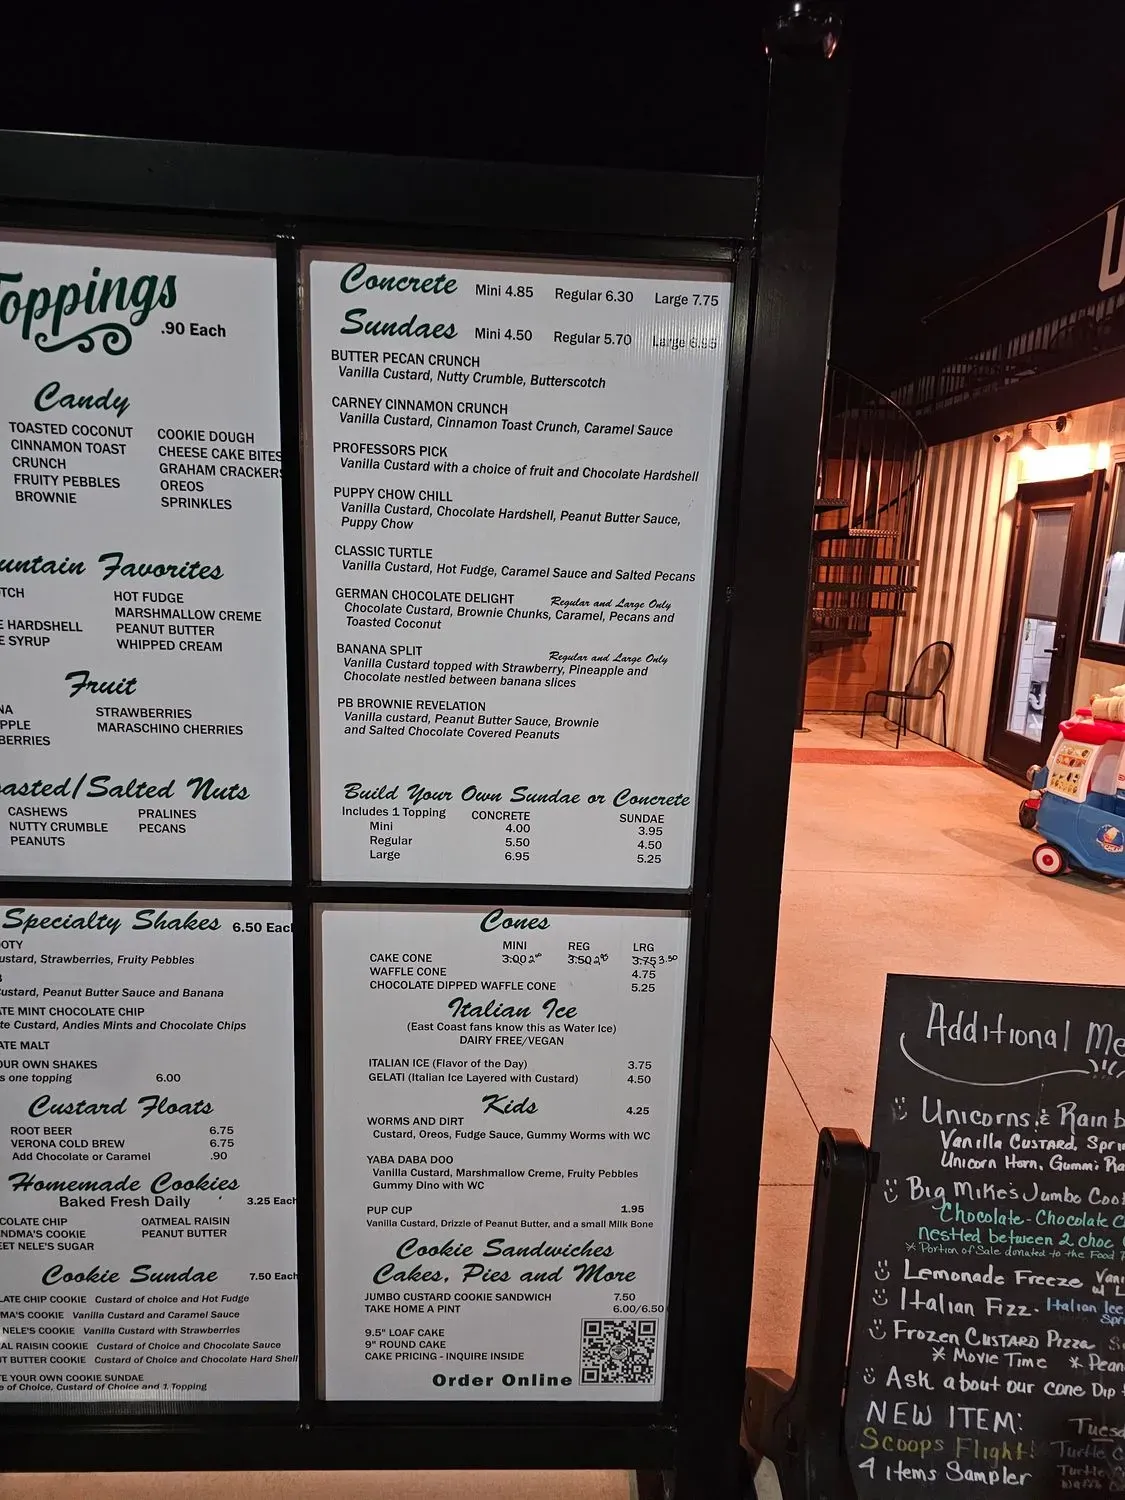 Toppings
.90 Each
Candy
TOASTED COCONUT
CINNAMON TOAST
CRUNCH
FRUITY PEBBLES
BROWNIE
COOKIE DOUGH
CHEESE CAKE BITES
GRAHAM CRACKERS
OREOS
SPRINKLES
untain Favorites
TCH
E HARDSHELL
E SYRUP
HOT FUDGE
MARSHMALLOW CREME
PEANUT BUTTER
WHIPPED CREAM
Fruit
NA
PPLE
BERRIES
STRAWBERRIES
MARASCHINO CHERRIES
oasted/Salted Nuts
CASHEWS
NUTTY CRUMBLE
PEANUTS
PRALINES
PECANS
Concrete Mini 4.85 Regular 6.30 Large 7.75
Sundaes Mini 4.50 Regular 5.70 Large 6.95
BUTTER PECAN CRUNCH
Vanilla Custard, Nutty Crumble, Butterscotch
CARNEY CINNAMON CRUNCH
Vanilla Custard, Cinnamon Toast Crunch, Caramel Sauce
PROFESSORS PICK
Vanilla Custard with a choice of fruit and Chocolate Hardshell
PUPPY CHOW CHILL
Vanilla Custard, Chocolate Hardshell, Peanut Butter Sauce,
Puppy Chow
CLASSIC TURTLE
Vanilla Custard, Hot Fudge, Caramel Sauce and Salted Pecans
GERMAN CHOCOLATE DELIGHT Regular and Large Only
Chocolate Custard, Brownie Chunks, Caramel, Pecans and
Toasted Coconut
BANANA SPLIT Regular and Large Only
Vanilla Custard topped with Strawberry, Pineapple and
Chocolate nestled between banana slices
PB BROWNIE REVELATION
Vanilla custard, Peanut Butter Sauce, Brownie
and Salted Chocolate Covered Peanuts
Build Your Own Sundae or Concrete
Includes 1 Topping CONCRETE SUNDAE
Mini 4.00 3.95
Regular 5.50 4.50
Large 6.95 5.25
Specialty Shakes 6.50 Each
OTY
ustard, Strawberries, Fruity Pebbles
ustard, Peanut Butter Sauce and Banana
TE MINT CHOCOLATE CHIP
te Custard, Andies Mints and Chocolate Chips
ATE MALT
OUR OWN SHAKES
s one topping 6.00
Custard Floats
ROOT BEER 6.75
VERONA COLD BREW 6.75
Add Chocolate or Caramel .90
Homemade Cookies
Baked Fresh Daily 3.25 Each
COLATE CHIP
NDMA'S COOKIE
EET NELE'S SUGAR
OATMEAL RAISIN
PEANUT BUTTER
Cookie Sundae 7.50 Each
LATE CHIP COOKIE Custard of choice and Hot Fudge
MA'S COOKIE Vanilla Custard and Caramel Sauce
NELE'S COOKIE Vanilla Custard with Strawberries
AL RAISIN COOKIE Custard of Choice and Chocolate Sauce
T BUTTER COOKIE Custard of Choice and Chocolate Hard Shell
TE YOUR OWN COOKIE SUNDAE
e of Choice, Custard of Choice and 1 Topping
Cones
MINI REG LRG
CAKE CONE 3.00 3.50 3.75 3.50
WAFFLE CONE 4.75
CHOCOLATE DIPPED WAFFLE CONE 5.25
Italian Ice
(East Coast fans know this as Water Ice)
DAIRY FREE/VEGAN
ITALIAN ICE (Flavor of the Day) 3.75
GELATI (Italian Ice Layered with Custard) 4.50
Kids 4.25
WORMS AND DIRT
Custard, Oreos, Fudge Sauce, Gummy Worms with WC
YABA DABA DOO
Vanilla Custard, Marshmallow Creme, Fruity Pebbles
Gummy Dino with WC
PUP CUP 1.95
Vanilla Custard, Drizzle of Peanut Butter, and a small Milk Bone
Cookie Sandwiches
Cakes, Pies and More
JUMBO CUSTARD COOKIE SANDWICH 7.50
TAKE HOME A PINT 6.00/6.50
9.5" LOAF CAKE
9" ROUND CAKE
CAKE PRICING - INQUIRE INSIDE
Order Online
Additional Me
Unicorns & Rainb
Vanilla Custard, Spri
Unicorn Horn, Gummi Ra
Big Mike's Jumbo Coo
Chocolate-Chocolate C
nestled between 2 choc
* Portion of Sale donated to the Food
Lemonade Freeze Vani
w/ L
Italian Fizz - Italian Ice
Spri
Frozen Custard Pizza
* Movie Time * Pean
Ask about our cone Dip
NEW ITEM:
Scoops Flight!
4 items Sampler
Tuesd
Turtle C